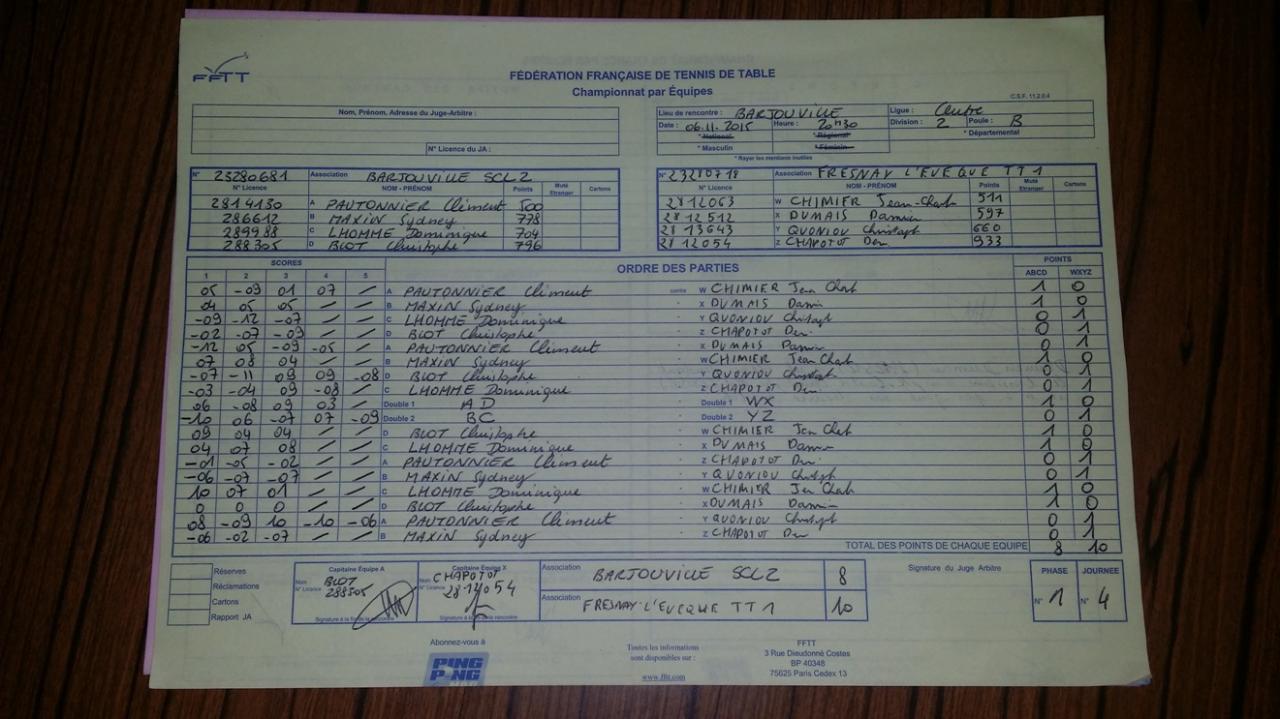 FFTT
FÉDÉRATION FRANÇAISE DE TENNIS DE TABLE
Championnat par Équipes
C.S.F. 11.2.0.4
Nom, Prénom, Adresse du Juge-Arbitre :
N° Licence du JA :
Lieu de rencontre : BARJOUVILLE Ligue : Centre
Date : 06.11.2015 Heure : 20H30 Division : 2 Poule : B
* National * Régional * Départemental
* Masculin * Féminin
* Rayer les mentions inutiles
N° 23280681 Association BARJOUVILLE SCL2
N° Licence NOM - PRÉNOM Points Muté Etranger Cartons
2814130 A PAUTONNIER Clément 500
286612 B MAXIN Sydney 778
289988 C LHOMME Dominique 704
288305 D BLOT Christophe 796
N° 23280718 Association FRESNAY L'EVEQUE TT 1
N° Licence NOM - PRÉNOM Points Muté Etranger Cartons
2812063 W CHIMIER Jean-Charl 511
2812512 X DUMAIS Damien 597
2813643 Y QUONIOU Christoph 660
2812054 Z CHAPOTOT Den 933
SCORES ORDRE DES PARTIES POINTS
1 2 3 4 5 ABCD WXYZ
05 -09 01 07 / A PAUTONNIER Clément contre W CHIMIER Jean Charl 1 0
04 05 05 / / B MAXIN Sydney - X DUMAIS Damien 1 0
-09 -12 -07 / / C LHOMME Dominique - Y QUONIOU Christoph 0 1
-02 -07 -09 / / D BLOT Christophe - Z CHAPOTOT Den 0 1
-12 05 -09 -05 / A PAUTONNIER Clément - X DUMAIS Damien 0 1
07 08 04 / / B MAXIN Sydney - W CHIMIER Jean Charl 1 0
-07 -11 09 09 -08 D BLOT Christophe - Y QUONIOU Christoph 0 1
-03 -04 09 -08 / C LHOMME Dominique - Z CHAPOTOT Den 0 1
06 -08 09 03 / Double 1 AD - Double 1 WX 1 0
-10 06 -07 07 -09 Double 2 BC - Double 2 YZ 0 1
09 04 04 / / D BLOT Christophe - W CHIMIER Jean Charl 1 0
04 07 08 / / C LHOMME Dominique - X DUMAIS Damien 1 0
-01 -05 -02 / / A PAUTONNIER Clément - Z CHAPOTOT Den 0 1
-06 -07 -07 / / B MAXIN Sydney - Y QUONIOU Christoph 0 1
10 07 01 / / C LHOMME Dominique - W CHIMIER Jean Charl 1 0
0 0 0 / / D BLOT Christophe - X DUMAIS Damien 1 0
08 -09 10 -10 -06 A PAUTONNIER Clément - Y QUONIOU Christoph 0 1
-06 -02 -07 / / B MAXIN Sydney - Z CHAPOTOT Den 0 1
TOTAL DES POINTS DE CHAQUE EQUIPE 8 10
Réserves
Réclamations
Cartons
Rapport JA
Capitaine Equipe A
Nom BLOT
N° Licence 288305
Signature à la fin de la rencontre
Capitaine Equipe X
Nom CHAPOTOT
N° Licence 2812054
Association BARJOUVILLE SCL2 8
Association FRESNAY L'EVEQUE TT 1 10
Signature du Juge Arbitre
PHASE JOURNEE
N° 1 N° 4
Abonnez-vous à
PING
PONG
Toutes les informations
sont disponibles sur :
www.fftt.com
FFTT
3 Rue Dieudonné Costes
BP 40348
75625 Paris Cedex 13